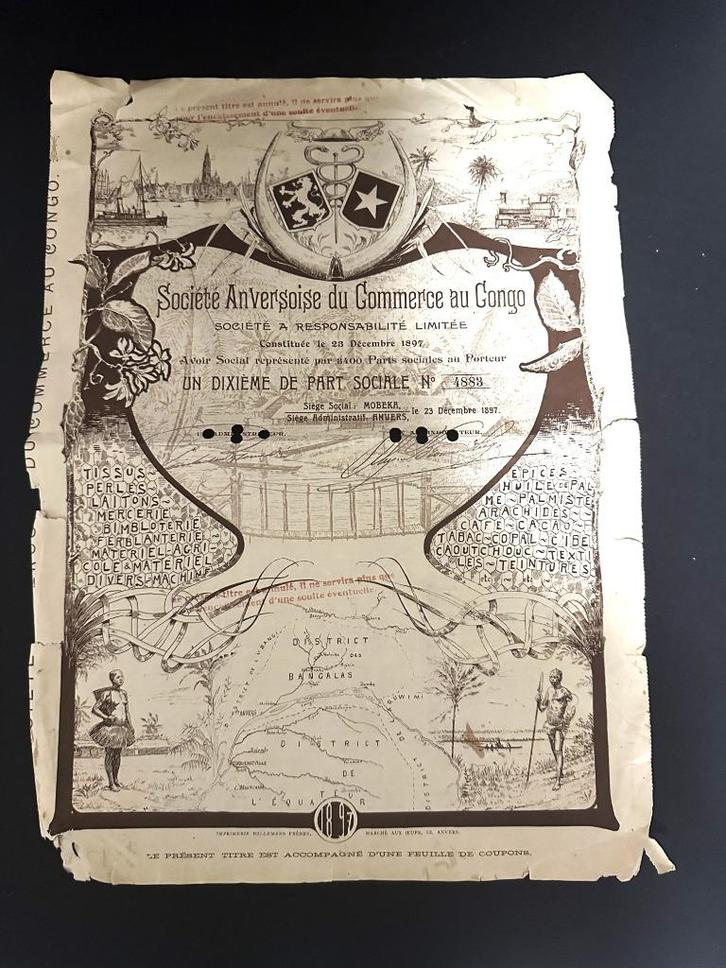 présent titre est annulé, il ne servira plus que
pour l'encaissement d'une soulte éventuelle.
DU COMMERCE AU CONGO.
Société Anversoise du Commerce au Congo
SOCIÉTÉ A RESPONSABILITÉ LIMITÉE
Constituée le 23 Décembre 1897
Avoir Social représenté par 3400 Parts sociales au Porteur
UN DIXIÈME DE PART SOCIALE No 4883
Siège Social: MOBEKA,
Siège Administratif: ANVERS,
le 23 Décembre 1897.
TISSUS~
PERLES
LAITONS~
MERCERIE
~BIMBLOTERIE
FERBLANTERIE~
MATERIEL-AGRI-
COLE & MATERIEL
DIVERS~MACHIN
EPICES~
HUILE DE PAL
ME ~ PALMISTE
ARACHIDES
CAFÉ ~ CACAO~
TABAC~COPAL~CIRE
CAOUTCHOUC~TEXTI
LES ~ TEINTURES
etc etc
titre est annulé, il ne servira plus que
d'une soulte éventuelle.
DISTRICT
DES
BANGALAS
DISTRICT
DE
L'ÉQUATEUR
1897
IMPRIMERIE BELLEMANS FRÈRES, MARCHÉ AUX ŒUFS, 12, ANVERS.
LE PRÉSENT TITRE EST ACCOMPAGNÉ D'UNE FEUILLE DE COUPONS.